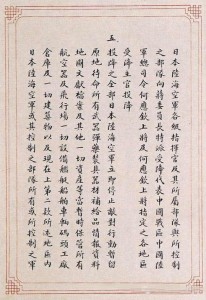 日本陸海空軍各級指揮官及其所屬部隊與所控制
之部隊向蔣委員長特派受降代表中國戰區中國陸
軍總司令何應欽上將及何應欽上將指定之各地區
受降主官投降
五
投降之全部日本陸海空軍立即停止敵對行動暫留
原地待命所有武器彈藥裝具器材補給品情報資料
地圖文獻檔案及其他一切資產等當暫時保管所有
航空器及飛行場一切設備艦艇船舶車輛碼頭工廠
倉庫及一切建築物以及現在上第二款所述地區內
日本陸海空軍或其控制之部隊所有或所控制之軍